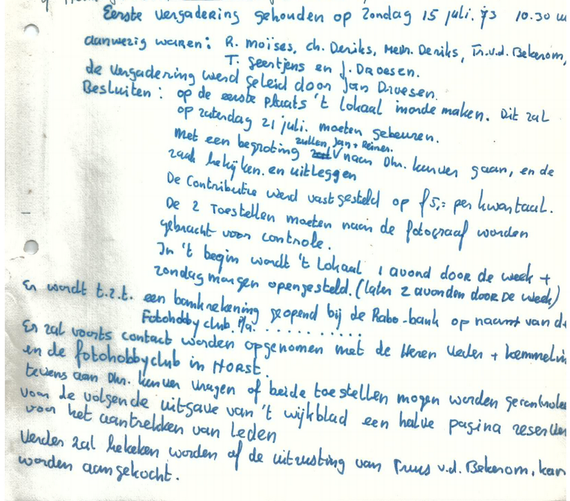 Eerste vergadering gehouden op zondag 15 juli '73 10.30 u
aanwezig waren: R. Moïses, Ch. Deriks, Mevr. Deriks, Tr. v.d. Bekerom,
T. Geertjens en J. Droesen.
de vergadering werd geleid door Jan Droesen.
Besluiten: op de eerste plaats 't lokaal in orde maken. Dit zal
op zaterdag 21 juli. moeten gebeuren.
Met een begroting zullen, Jan + Reiner naar Dhr. kunnen gaan, en de
zaak bekijken. en uitleggen
De Contributie werd vastgesteld op f5,= per kwartaal.
De 2 Toestellen moeten naar de fotograaf worden
gebracht voor controle.
In 't begin wordt 't lokaal 1 avond door de week +
zondag morgen opengesteld. (later 2 avonden door De week)
Er wordt t.z.t. een bankrekening geopend bij de Rabo-bank op naam van d
Fotohobby club. p/a. . . . . . . . . .
Er zal voorts contact worden opgenomen met de Heren +
en de fotohobbyclub in Horst.
tevens aan Dhr. vragen of beide toestellen mogen worden
voor de volgende uitgave van 't wijkblad een halve pagina
voor het aantrekken van leden
Verder zal bekeken worden of de uitrusting van Truus v.d. Bekerom, kan
worden aangekocht.